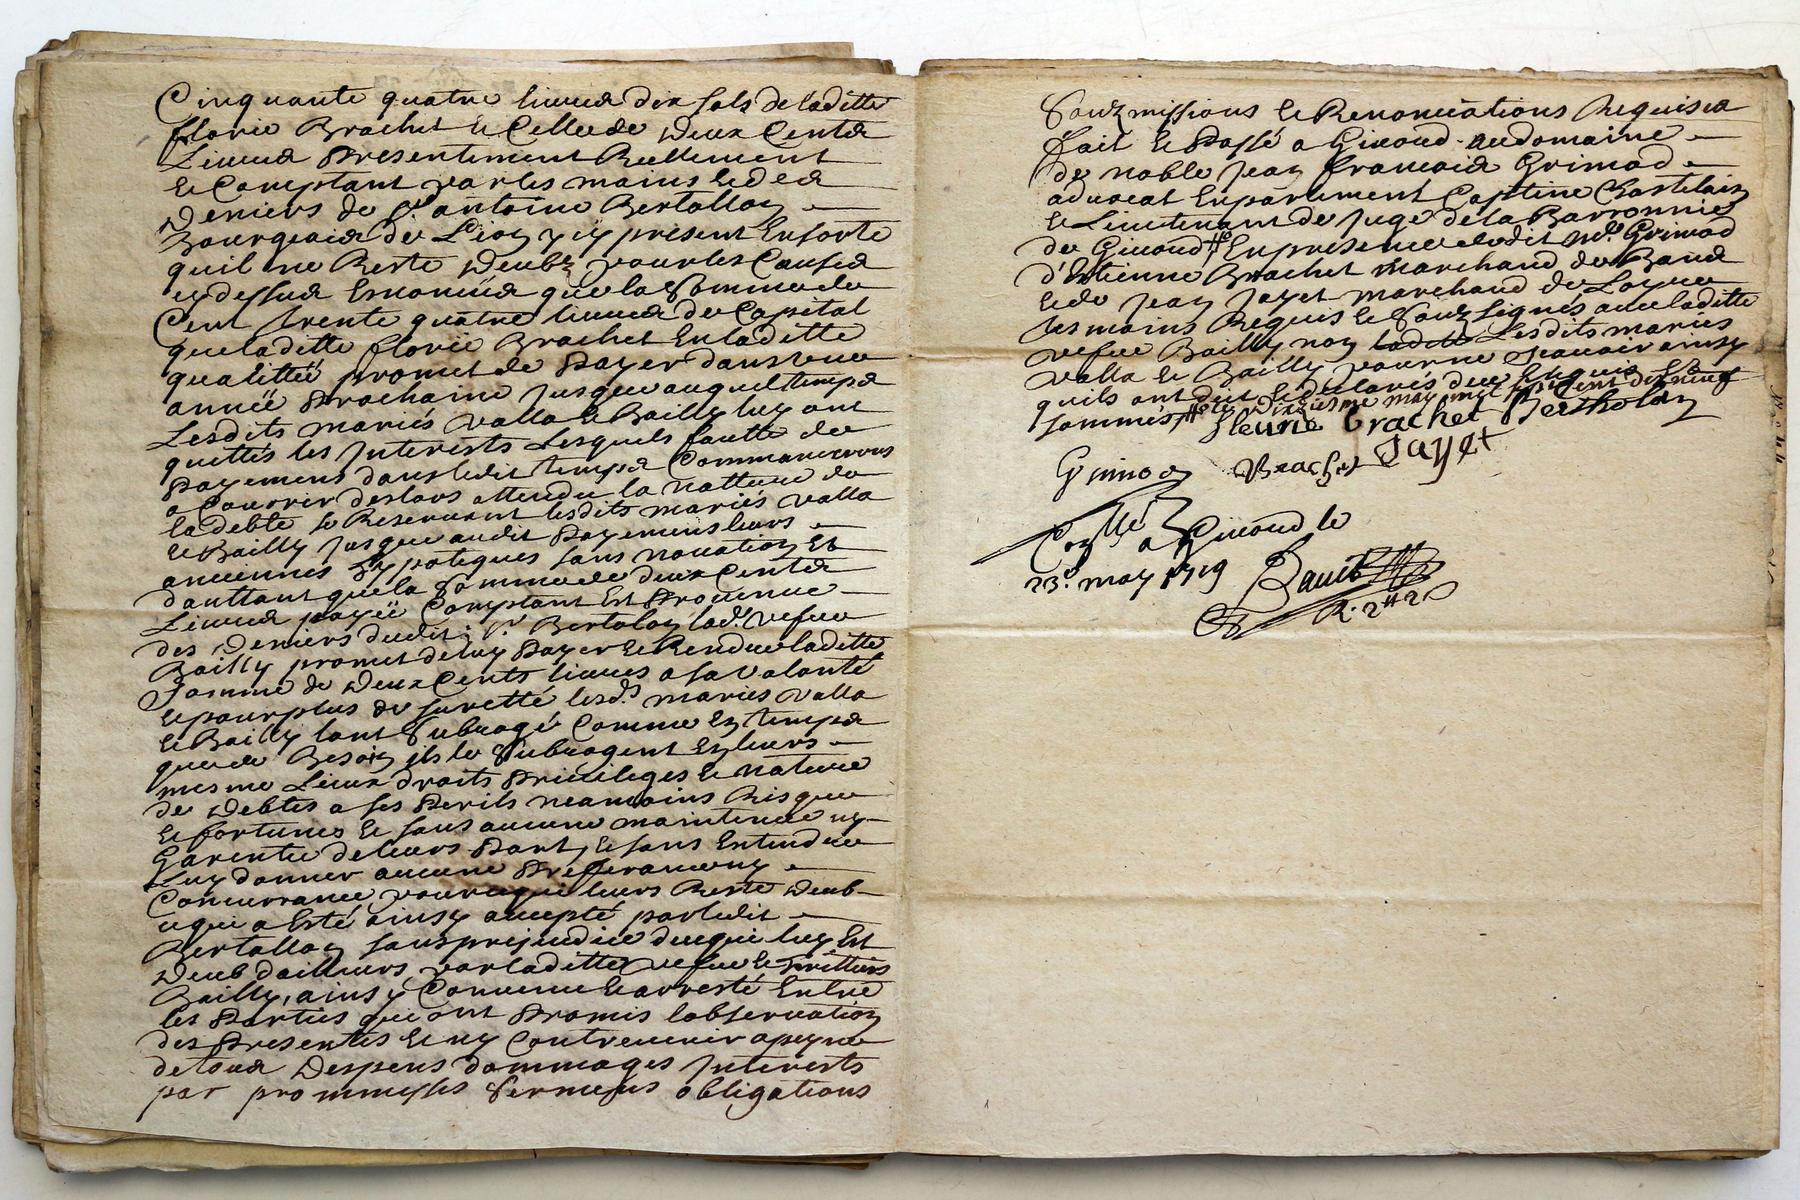 Cinquante quatre livres dix sols de laditte
florie Brachet & Celle de deux Centz
Livres Presentement Reellement
& Comptant par les mains & des
Deniers de Sr antoine Bertollon
Bourgeois de Lion y cy present Ensorte
quil ne Reste deubz pour les Causes
cy dessus Enoncées que la Somme de
Cent trente quatre livres de Capital
que laditte florie Brachet En laditte
qualitté promet de Payer dans une
année Prochaine jusques auquel temps
Lesdits mariés valla & Bailly luy ont
quittés les Interests Lesquels fautte de
Payement dans ledit temps Commanceront
a Courrir deslors attendu la natture de
la debte se Reservant lesdits mariés valla
& Bailly jusques audit Payement leurs
anciennes hypoteques sans novation Et
dauttant que la Somme de deux Centz
Livres payée Comptant Est Provenue
des Deniers dudit Sr Bertolon lad. vefve
Bailly promet de luy Payer & Rendre laditte
Somme de deux Cents livres a sa volonté
& pour plus de suretté lesd. mariés valla
& Bailly lont Subrogé Comme En temps
que de Besoin ils le Subrogent En leurs
mesme Lieux droits Privileges & nature
de Debtes a ses Perils neamoins Risques
& fortunes & sans aucune maintenue ny
Garentie de leurs Part, & sans Entendre
Luy donner aucune Prefferance ny
Concurrance pour ce qui leurs Reste deub
ce qui a Esté ainsy accepté par ledit
Bertollon sans prejudice de ce qui luy Est
deub dailleurs par laditte vefve & heritiers
Bailly, ainsy Convenu & arresté Entre
les Parties qui ont Promis lobservation
des Presentes & ny Contrevenir a peyne
de tous Despens dommages Interests
par prommesses Sermens obligations
Soubzmissions & Renonciations Requises
fait & Passé a Givord au domaine
de noble Jean francois Grimod
advocat En parlement Capitne Chastelain
& Lieutenant de Juge de la Barronnie
de Givord En presence dudit Mr. Grimod
d'Estienne Brachet Marchand de Bans
& de Jean Jayet marchand de Loyre
tesmoins Requis & Soubzsignés avec laditte
vefve Bailly non Lesdits mariés
valla & Bailly pour ne scavoir ainsy
quils ont dit & declarés de ce Enquis &
sommés le Dixiesme may mil sept Cent dix neuf
fleurie brachet Bertholon
Grimod Brachet Jayet
Conllé a Givord le
23e. may 1719